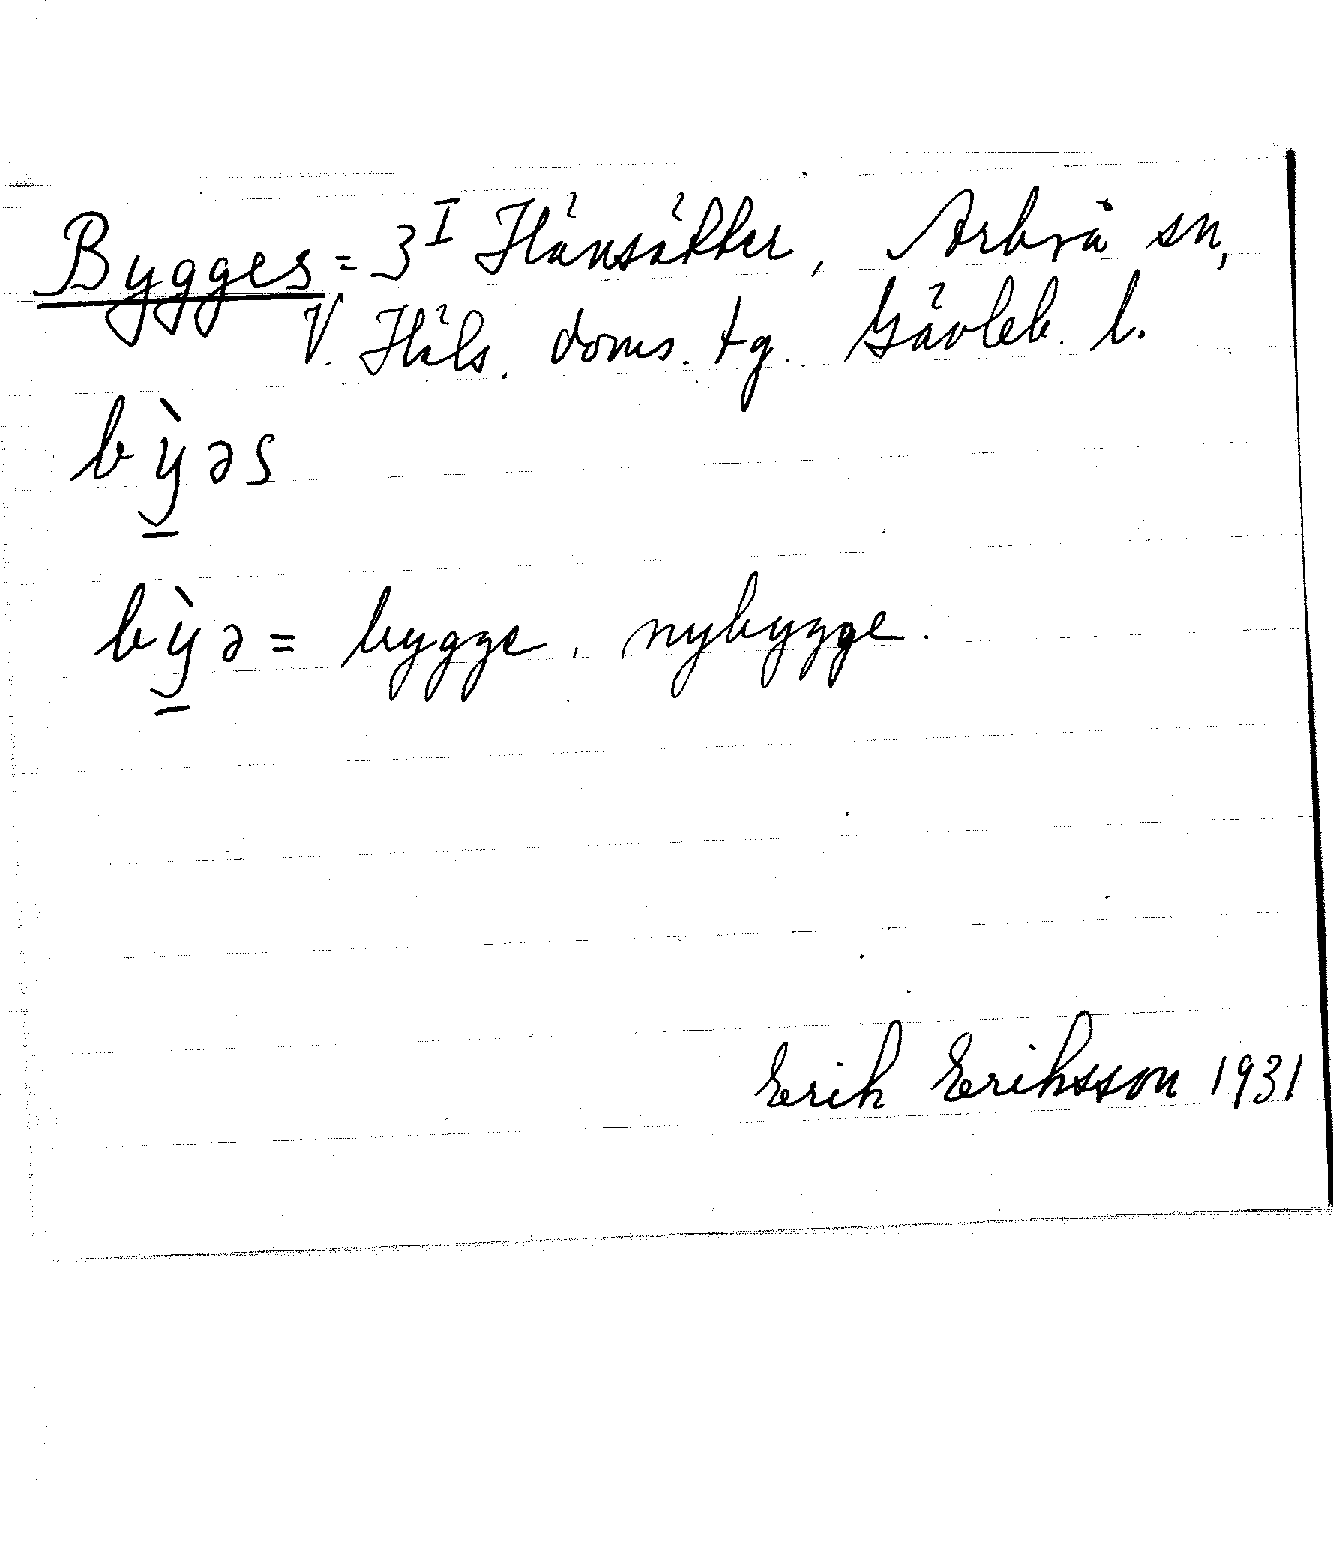 Bygges = 3^I Hänsätter, Arbrå sn,
V. Häls. doms. tg. Gävleb. l.
bỳ̱əs
bỳ̱ə = bygge, nybygge.
Erik Eriksson 1931